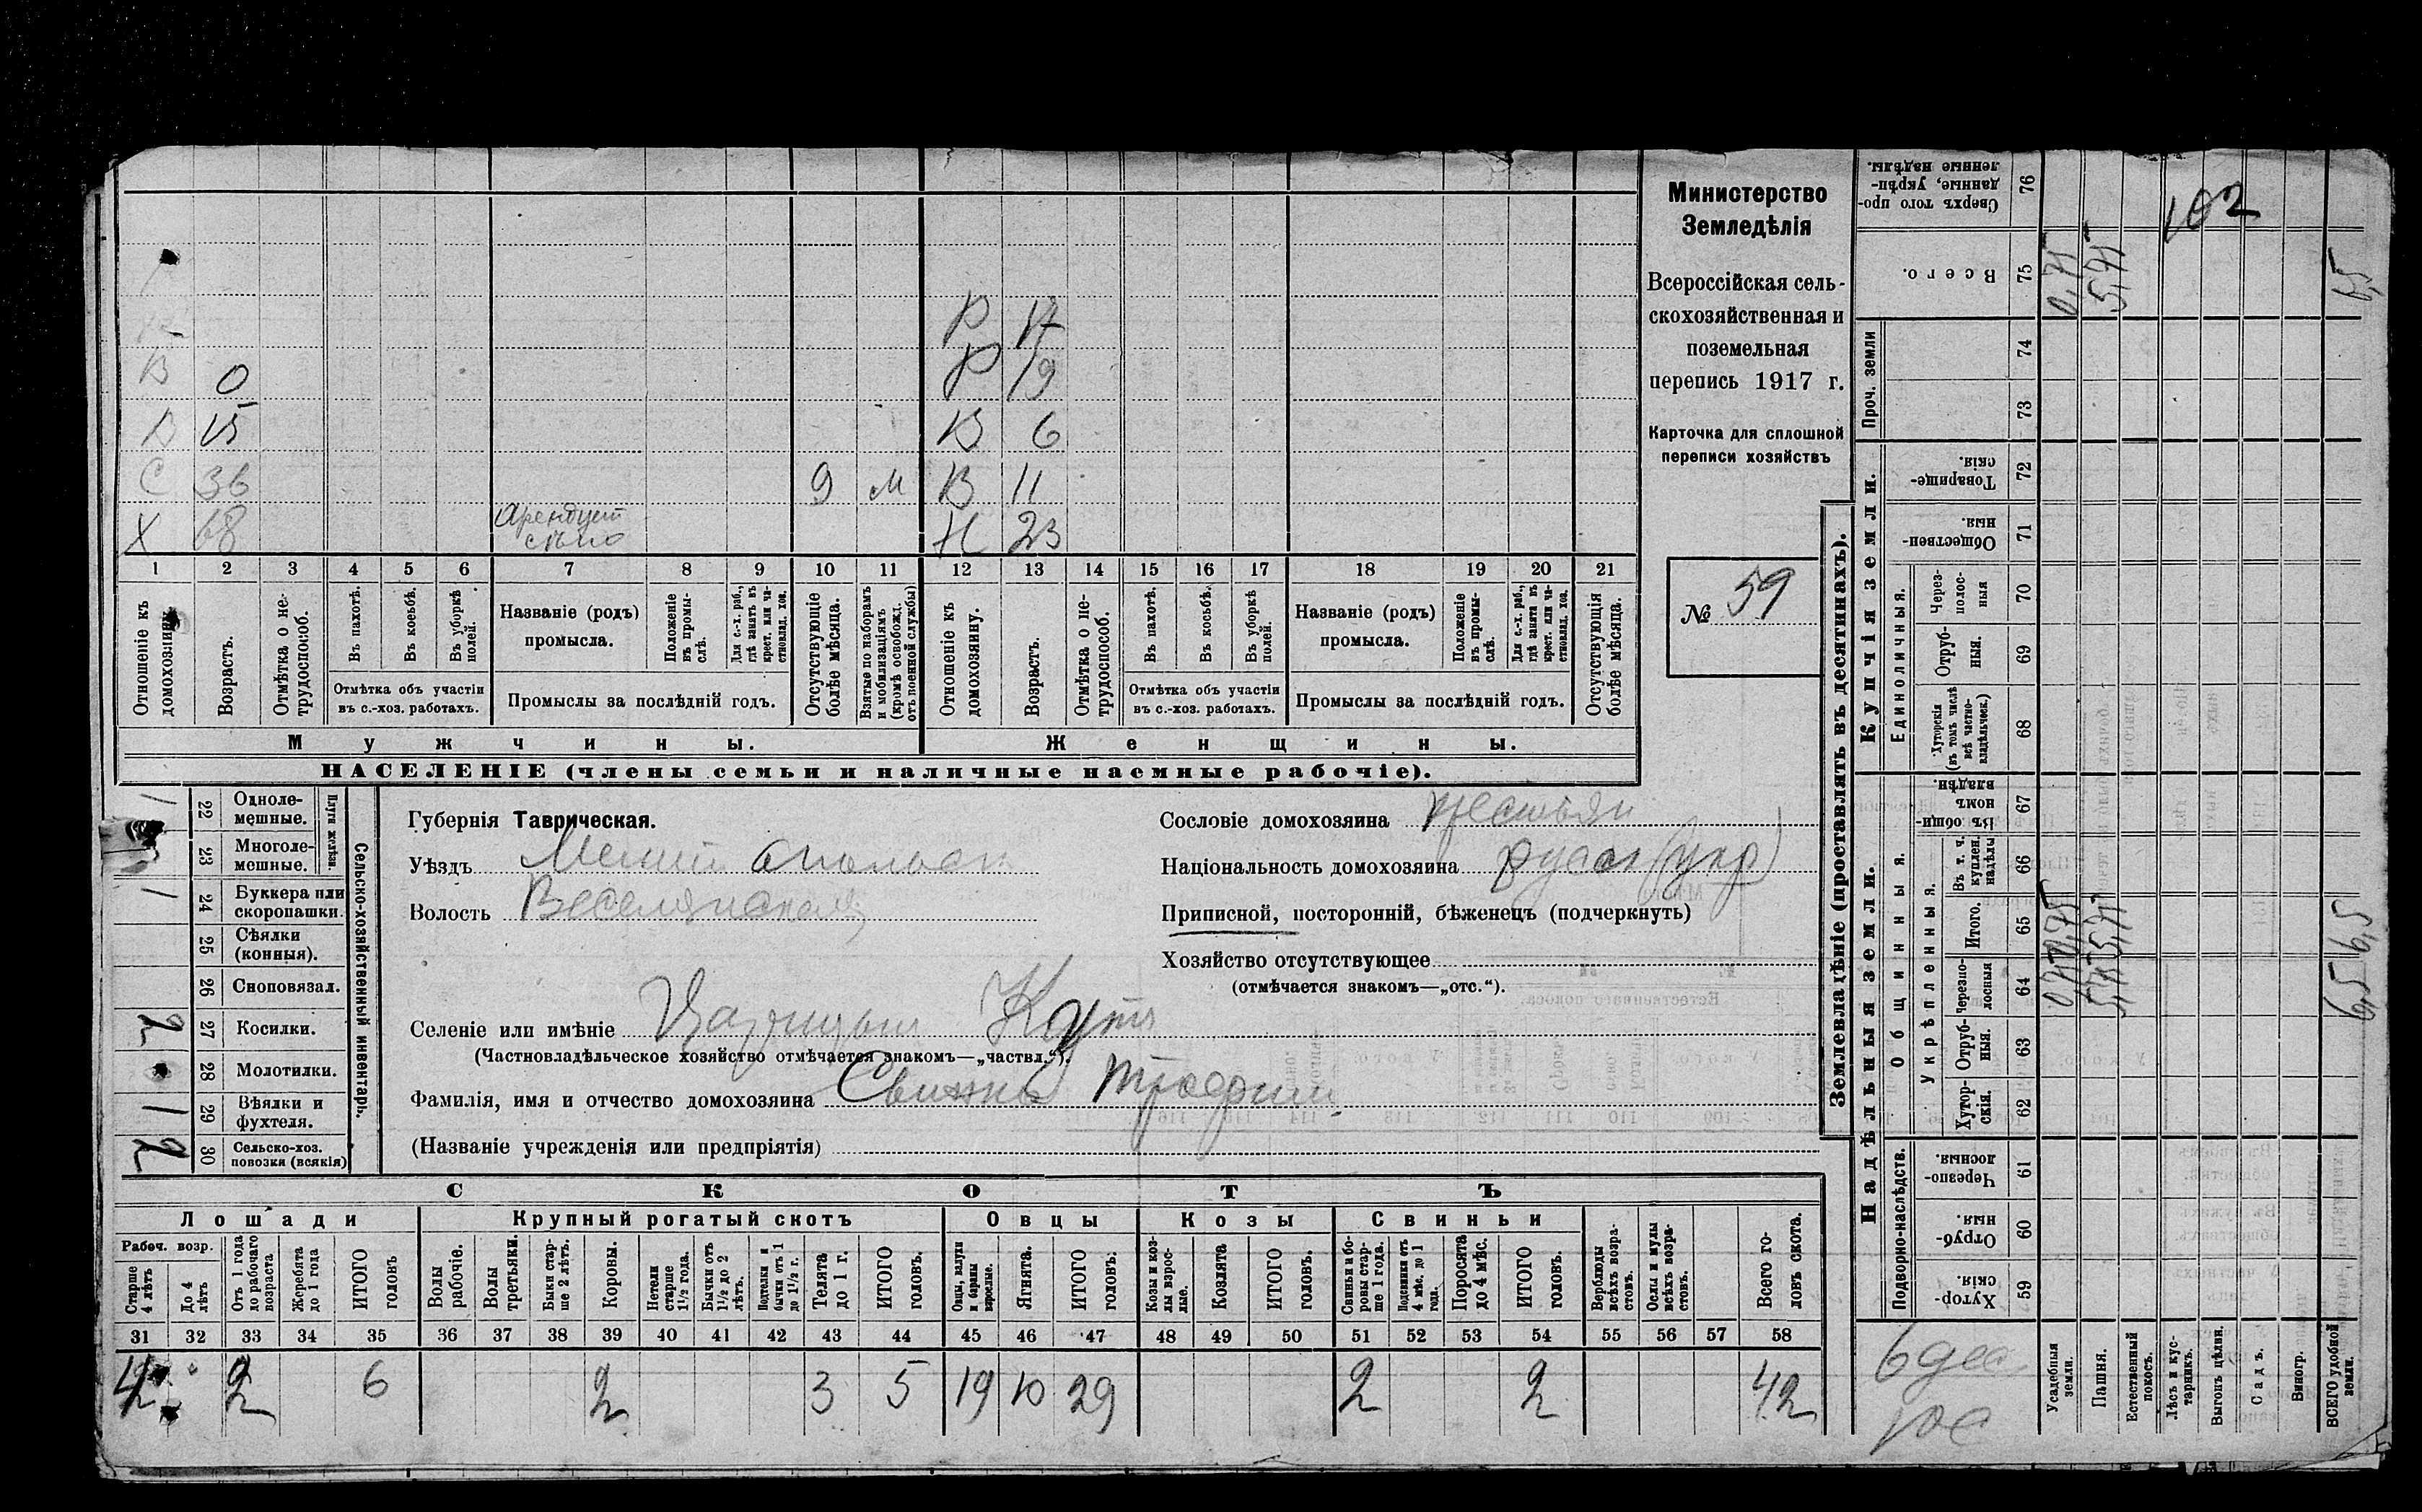 Министерство
Земледѣлія
Всероссійская сель-
скохозяйственная и
поземельная
перепись 1917 г.
Карточка для сплошной
переписи хозяйствъ
№ 59
Р 17
Р 19
В 0
В 15 В 6
С 36 9 м В 11
Х 68 Арендует Н 23
1 2 3 4 5 6 7 8 9 10 11 12 13 14 15 16 17 18 19 20 21
Отношеніе къ домохозяину.
Возрастъ.
Отмѣтка о не-трудоспособ.
Въ пахотѣ.
Въ косьбѣ.
Въ уборкѣ полей.
Отмѣтка объ участіи въ с.-хоз. работахъ.
Названіе (родъ) промысла.
Положеніе въ промы-слѣ.
Для с.-х. раб., гдѣ занятъ въ крест. или ча-стновлад. хоз.
Промыслы за послѣдній годъ.
Отсутствующіе болѣе мѣсяца.
Взятые по наборамъ и мобилизаціямъ (кромѣ освобожд. отъ военной службы)
Отношеніе къ домохозяину.
Возрастъ.
Отмѣтка о не-трудоспособ.
Въ пахотѣ.
Въ косьбѣ.
Въ уборкѣ полей.
Отмѣтка объ участіи въ с.-хоз. работахъ.
Названіе (родъ) промысла.
Положеніе въ промы-слѣ.
Для с.-х. раб., гдѣ занятъ въ крест. или ча-стновлад. хоз.
Промыслы за послѣдній годъ.
Отсутствующія болѣе мѣсяца.
Мужчины. Женщины.
НАСЕЛЕНІЕ (члены семьи и наличные наемные рабочіе).
Сельско-хозяйственный инвентарь.
Плуги желѣзн.
1 22 Одноле-мешные.
23 Многоле-мешные.
1 24 Буккера или скоропашки.
25 Сѣялки (конныя).
26 Сноповязал.
2 27 Косилки.
28 Молотилки.
1 29 Вѣялки и фухтеля.
2 30 Сельско-хоз. повозки (всякія)
Губернія Таврическая.
Уѣздъ Мелитопольск
Волость Веселянская
Селеніе или имѣніе Царицын Кут
(Частновладѣльческое хозяйство отмѣчается знакомъ—„частвл.“).
Фамилія, имя и отчество домохозяина Трофим
(Названіе учрежденія или предпріятія)
Сословіе домохозяина крестьян
Національность домохозяина русск (укр)
Приписной, посторонній, бѣженецъ (подчеркнуть)
Хозяйство отсутствующее
(отмѣчается знакомъ—„отс.“).
СКОТЪ
Лошади Крупный рогатый скотъ Овцы Козы Свиньи
Рабоч. возр.
Старше 4 лѣтъ
До 4 лѣтъ
Отъ 1 года до рабочаго возраста
Жеребята до 1 года
ИТОГО головъ
Волы рабочіе.
Волы третьяки.
Быки стар-ше 2 лѣтъ.
Коровы.
Нетели старше 1½ года.
Бычки отъ 1½ до 2 лѣтъ.
Подтелки и бычки отъ 1 до 1½ г.
Телята до 1 г.
ИТОГО головъ.
Овцы, валухи и бараны взрослые.
Ягнята.
ИТОГО головъ.
Козы и коз-лы взрос-лые.
Козлята
ИТОГО головъ.
Свиньи и бо-ровы стар-ше 1 года.
Подсвинки отъ 4 мѣс. до 1 года.
Поросята до 4 мѣс.
ИТОГО головъ.
Верблюды всѣхъ возра-стовъ.
Ослы и мулы всѣхъ возра-стовъ.
Всего го-ловъ скота.
31 32 33 34 35 36 37 38 39 40 41 42 43 44 45 46 47 48 49 50 51 52 53 54 55 56 57 58
4 2 6 2 3 5 19 10 29 2 2 42
Землевладѣніе (проставлять въ десятинахъ).
Купчія земли.
Надѣльныя земли.
Проч. земли
Единоличныя.
Общинныя.
Укрѣпленныя.
Подворно-наслѣдств.
76 Сверхъ того про-данные, укрѣп-ленные надѣлы.
75 Всего. 0,75 5,75 6,5
74
73
72 Товарище-скія.
71 Обществен-ныя.
70 Через-полос-ныя
69 Отруб-ныя.
68 Хуторскія (въ томъ числѣ всѣ частно-владѣльческ.)
67 Въ общи-номъ владѣн.
66 Въ т. ч. куплен. надѣлы
65 Итого. 0,75 5,75 6,5
64 Черезпо-лосныя 0,75 5,75 6,5
63 Отруб-ныя.
62 Хутор-скія.
61 Черезпо-лосныя.
60 Отруб-ныя.
59 Хутор-скія.
102
6 дес
Усадебныя земли.
Пашня.
Естественный покосъ.
Лѣсъ и кус-тарникъ.
Выгонъ цѣлин.
Садъ.
Виногр.
ВСЕГО удобной земли.